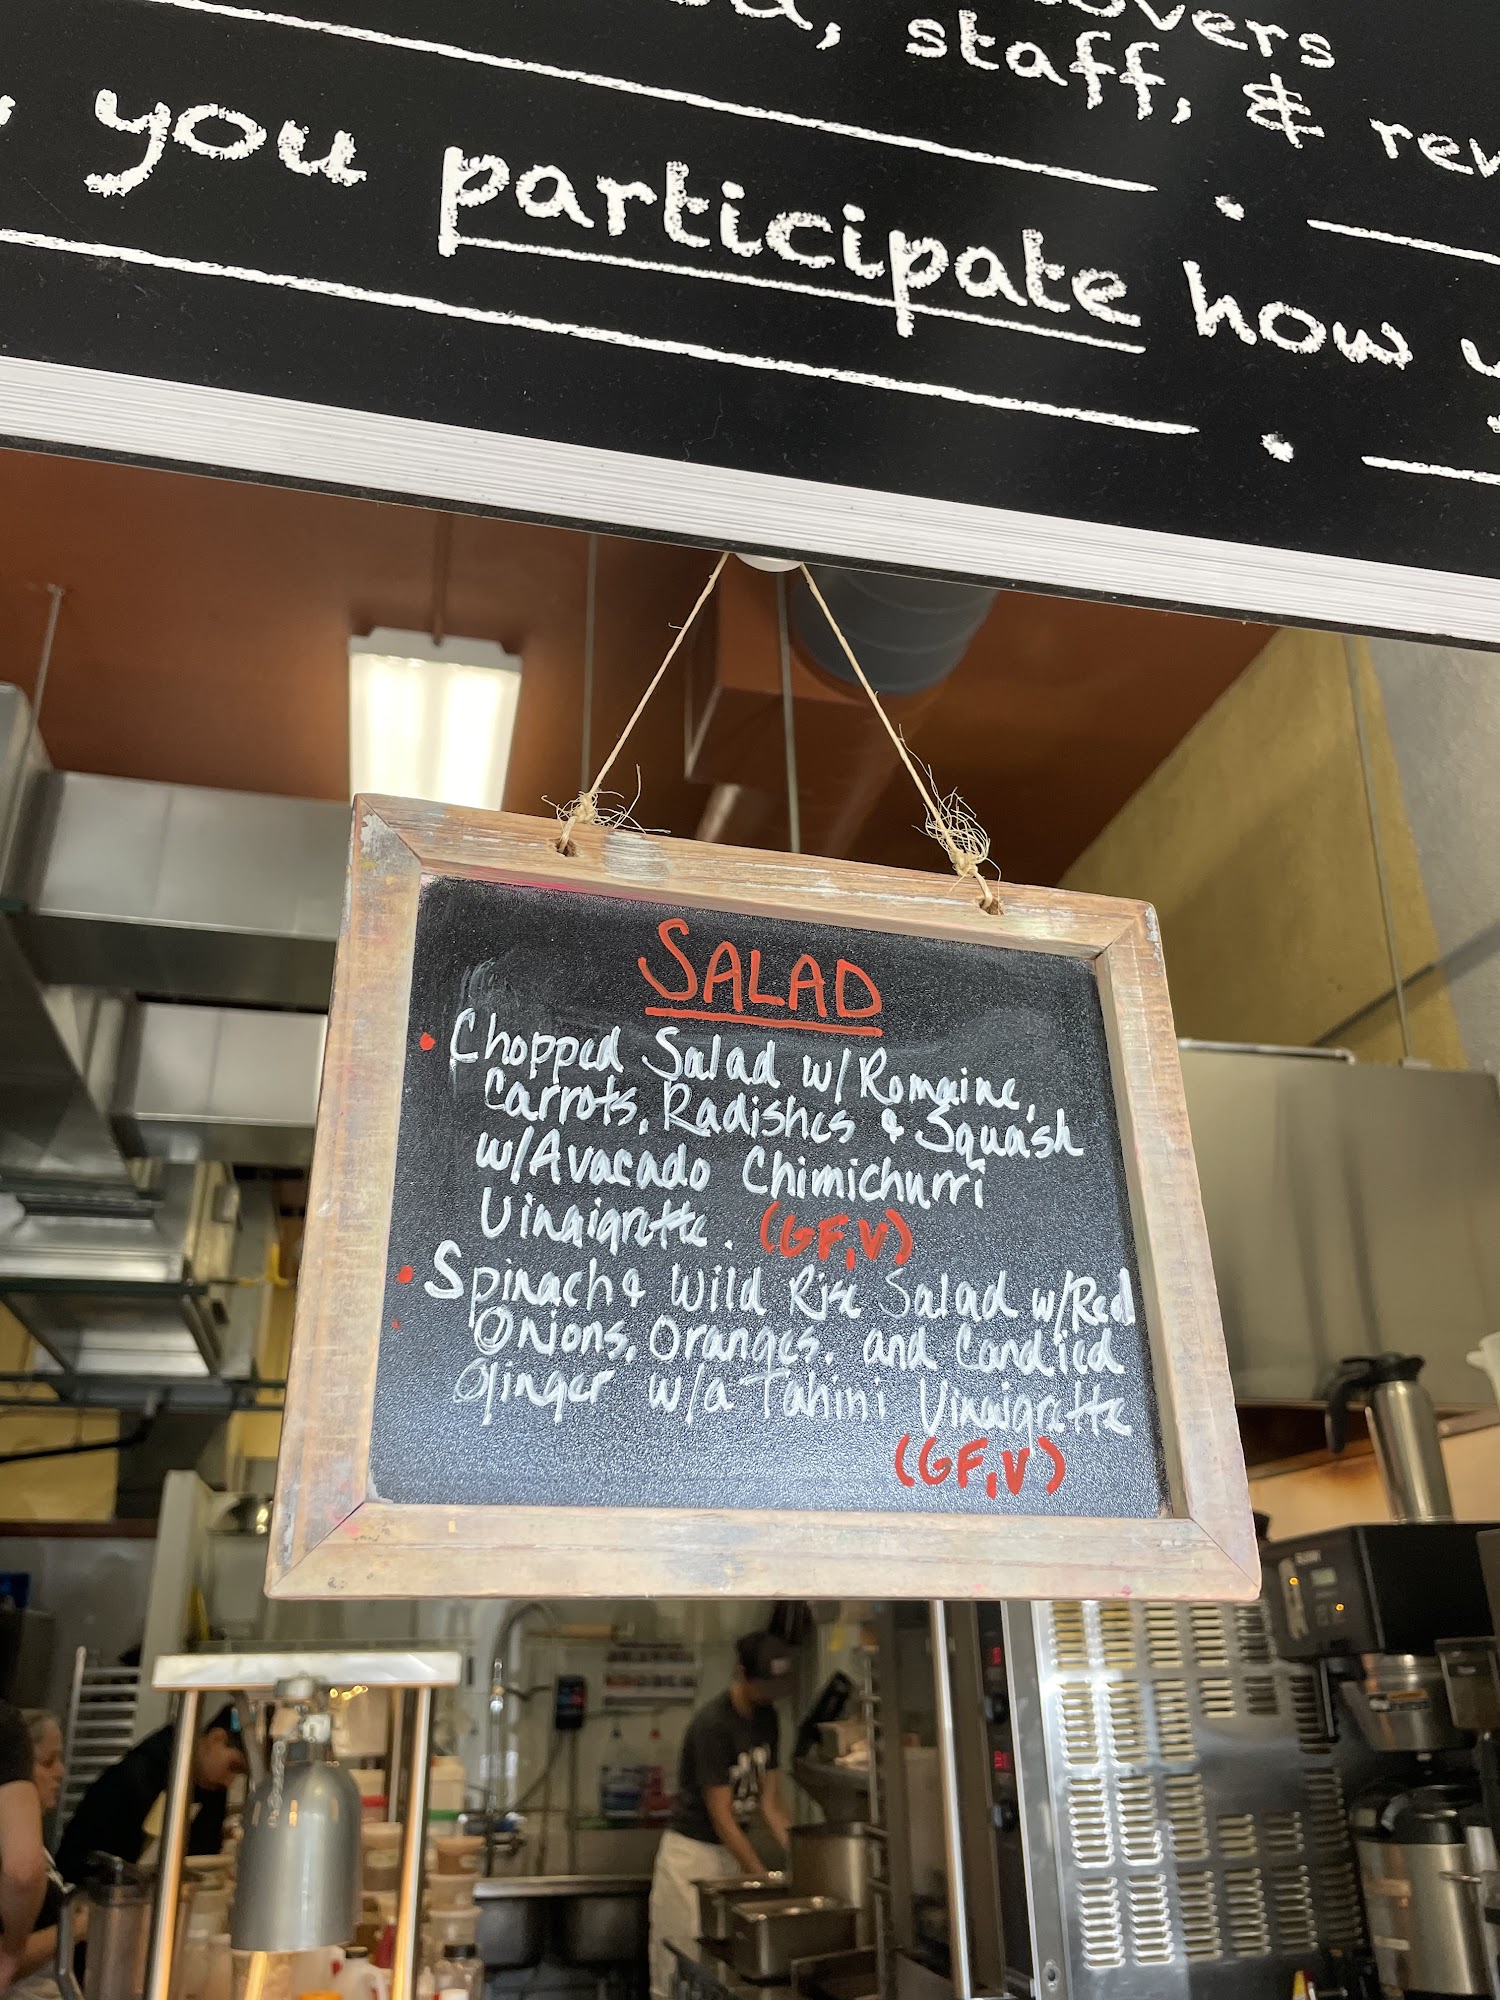 staff, &
you participate how
SALAD
• Chopped Salad w/ Romaine,
Carrots, Radishes & Squash
w/ Avacado Chimichurri
Vinaigrette. (GF,V)
• Spinach & Wild Rice Salad w/ Red
Onions, Oranges, and Candied
Ginger w/a Tahini Vinaigrette
(GF,V)